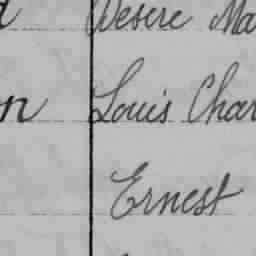 Desire Ma
Louis Char
Ernest